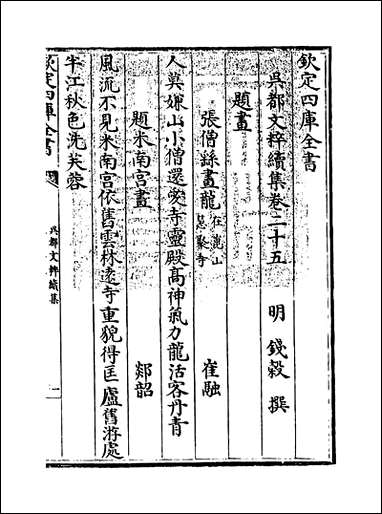 欽定四庫全書
吳都文粹續集卷二十五
明 錢穀 撰
題畫
張僧繇畫龍在崑山惠聚寺 崔融
人莫嫌山小僧還愛寺靈殿髙神氣力龍活客丹青
題米南宫畫 郯韶
風流不見米南宫依舊雲林遠寺重貌得匡廬舊游處
半江秋色洗芙蓉
欽定四庫全書
吳都文粹續集
一